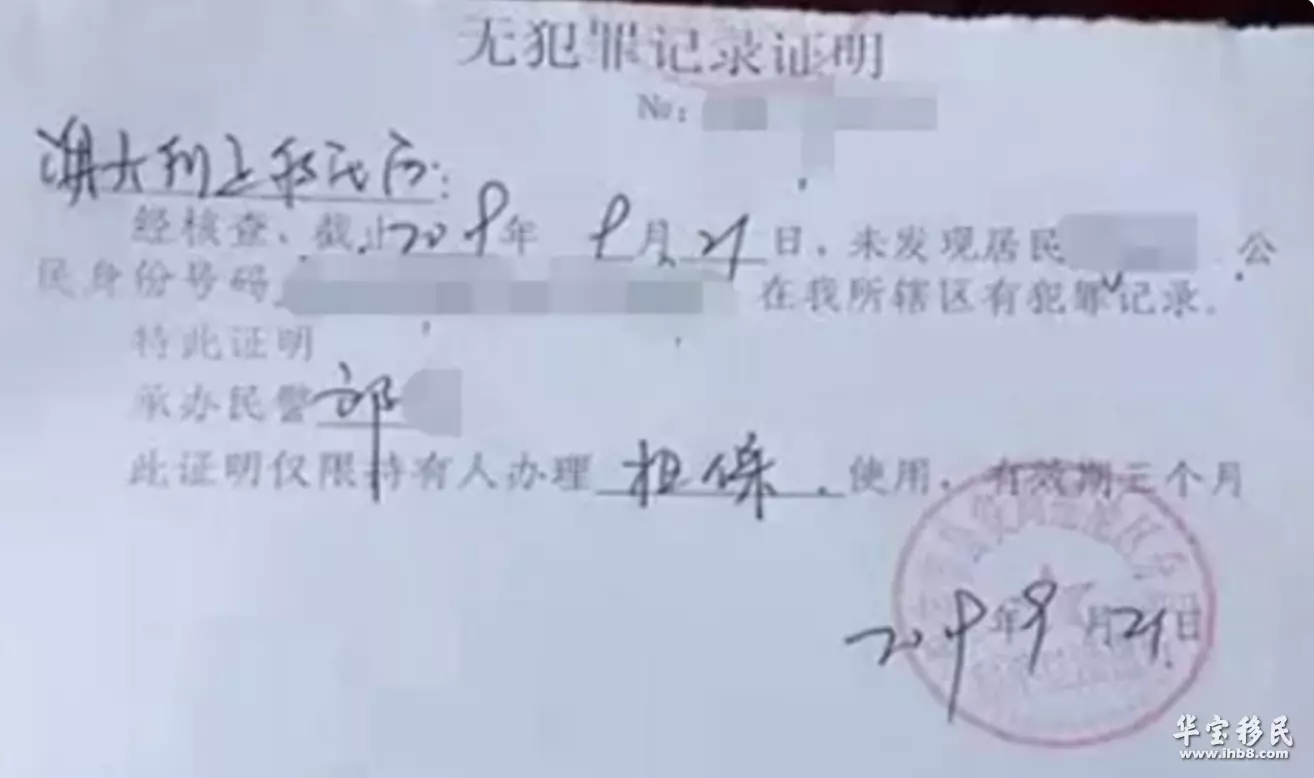 无犯罪记录证明
No:
澳大利亚移民局:
经核查、截止2019年9月21日、未发现居民 公
民身份号码 在我所辖区有犯罪记录。
特此证明
承办民警 郭
此证明仅限持有人办理 担保 使用,有效期三个月
2019年9月21日
华宝移民
www.ihb8.com